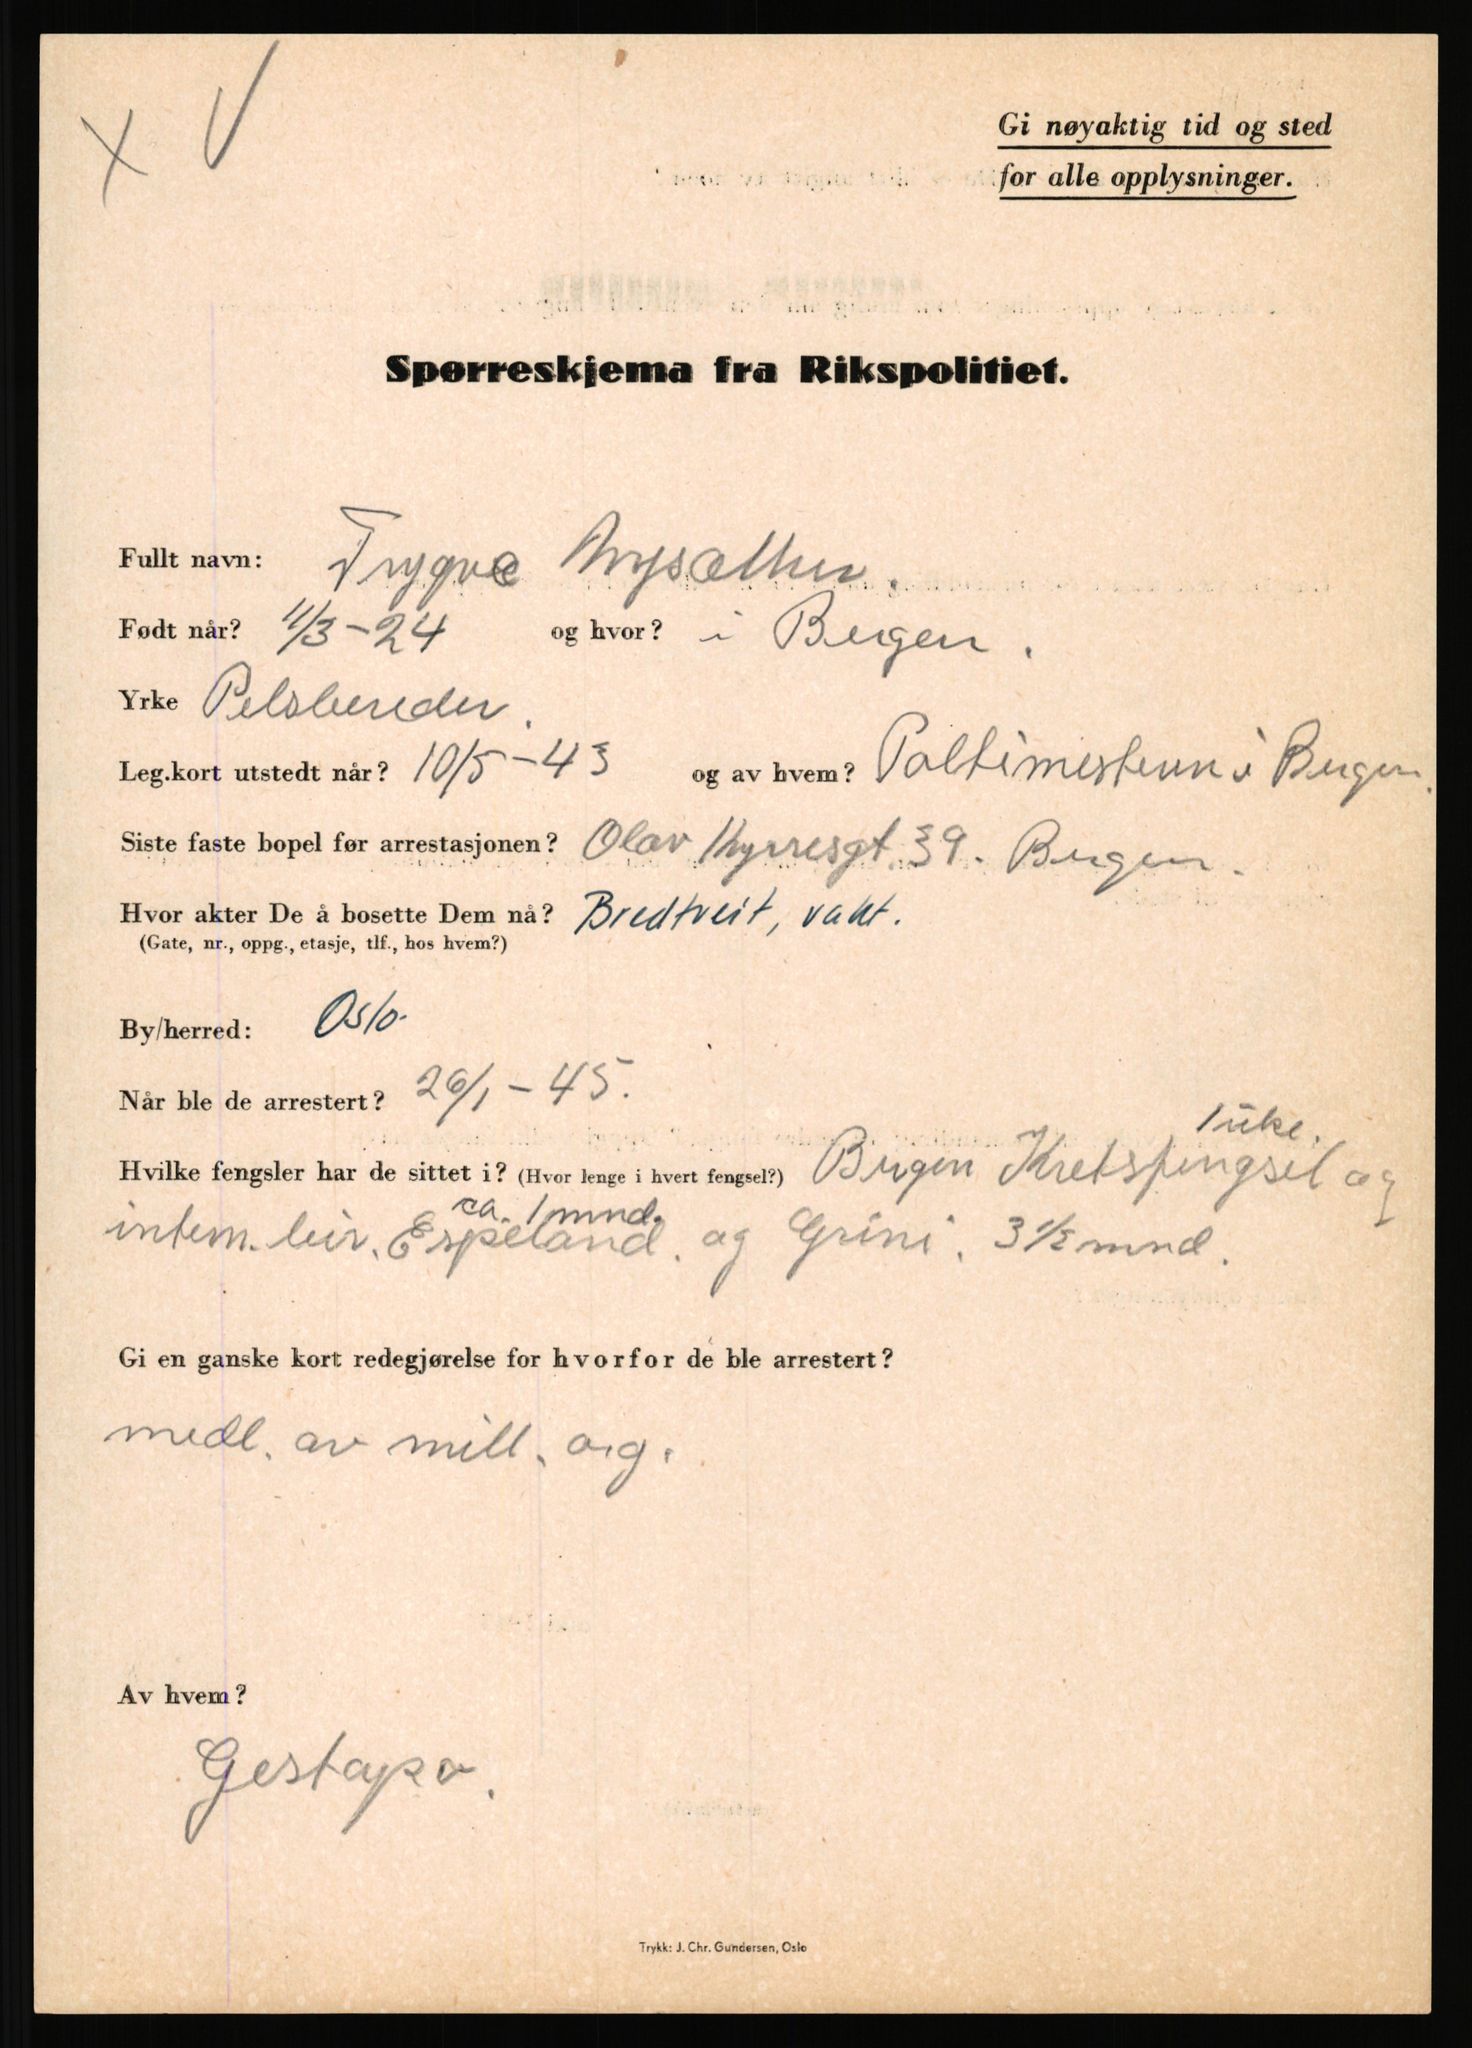 X V
Gi nøyaktig tid og sted
for alle opplysninger.
Spørreskjema fra Rikspolitiet.
Fullt navn: Trygve Nysæther.
Født når? 11/3-24 og hvor? i Bergen.
Yrke Pelsbereder.
Leg.kort utstedt når? 10/5-43 og av hvem? Poltimesteren i Bergen.
Siste faste bopel før arrestasjonen? Olav Kyrresgt. 39. Bergen.
Hvor akter De å bosette Dem nå? Bredtveit, vakt.
(Gate, nr., oppg., etasje, tlf., hos hvem?)
By/herred: Oslo.
Når ble de arrestert? 26/1-45.
1 uke.
Hvilke fengsler har de sittet i? (Hvor lenge i hvert fengsel?) Bergen Kretsfengsel og
ca. 1 mnd.
intern. leir. Espeland. og Grini. 3 1/2 mnd.
Gi en ganske kort redegjørelse for hvorfor de ble arrestert?
medl. av mill. org.
Av hvem?
Gestapo.
Trykk: J. Chr. Gundersen, Oslo